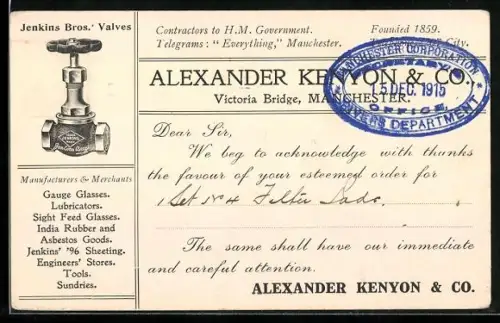 Jenkins Bros.' Valves
JENKINS
Manufacturers & Merchants
Gauge Glasses.
Lubricators.
Sight Feed Glasses.
India Rubber and
Asbestos Goods.
Jenkins' '96 Sheeting.
Engineers' Stores.
Tools.
Sundries.
Contractors to H.M. Government. Founded 1859.
Telegrams: "Everything," Manchester. City.
ALEXANDER KENYON & CO.,
Victoria Bridge, MANCHESTER.
MANCHESTER CORPORATION
SECRETARY'S
15 DEC. 1915
OFFICE
RIVERS DEPARTMENT
Dear Sir,
We beg to acknowledge with thanks
the favour of your esteemed order for
1 Set No 4 Filter
The same shall have our immediate
and careful attention.
ALEXANDER KENYON & CO.